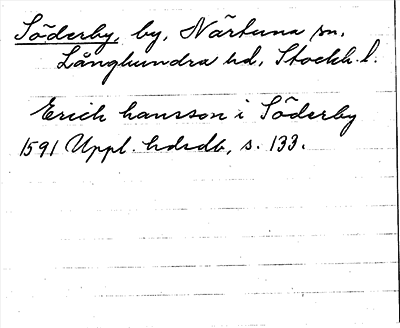 Söderby, by, Närtuna sn,
Långhundra hd, Stockh. l.
Erich hansson i Söderby
1591 Uppl. hdsdb, s. 133.